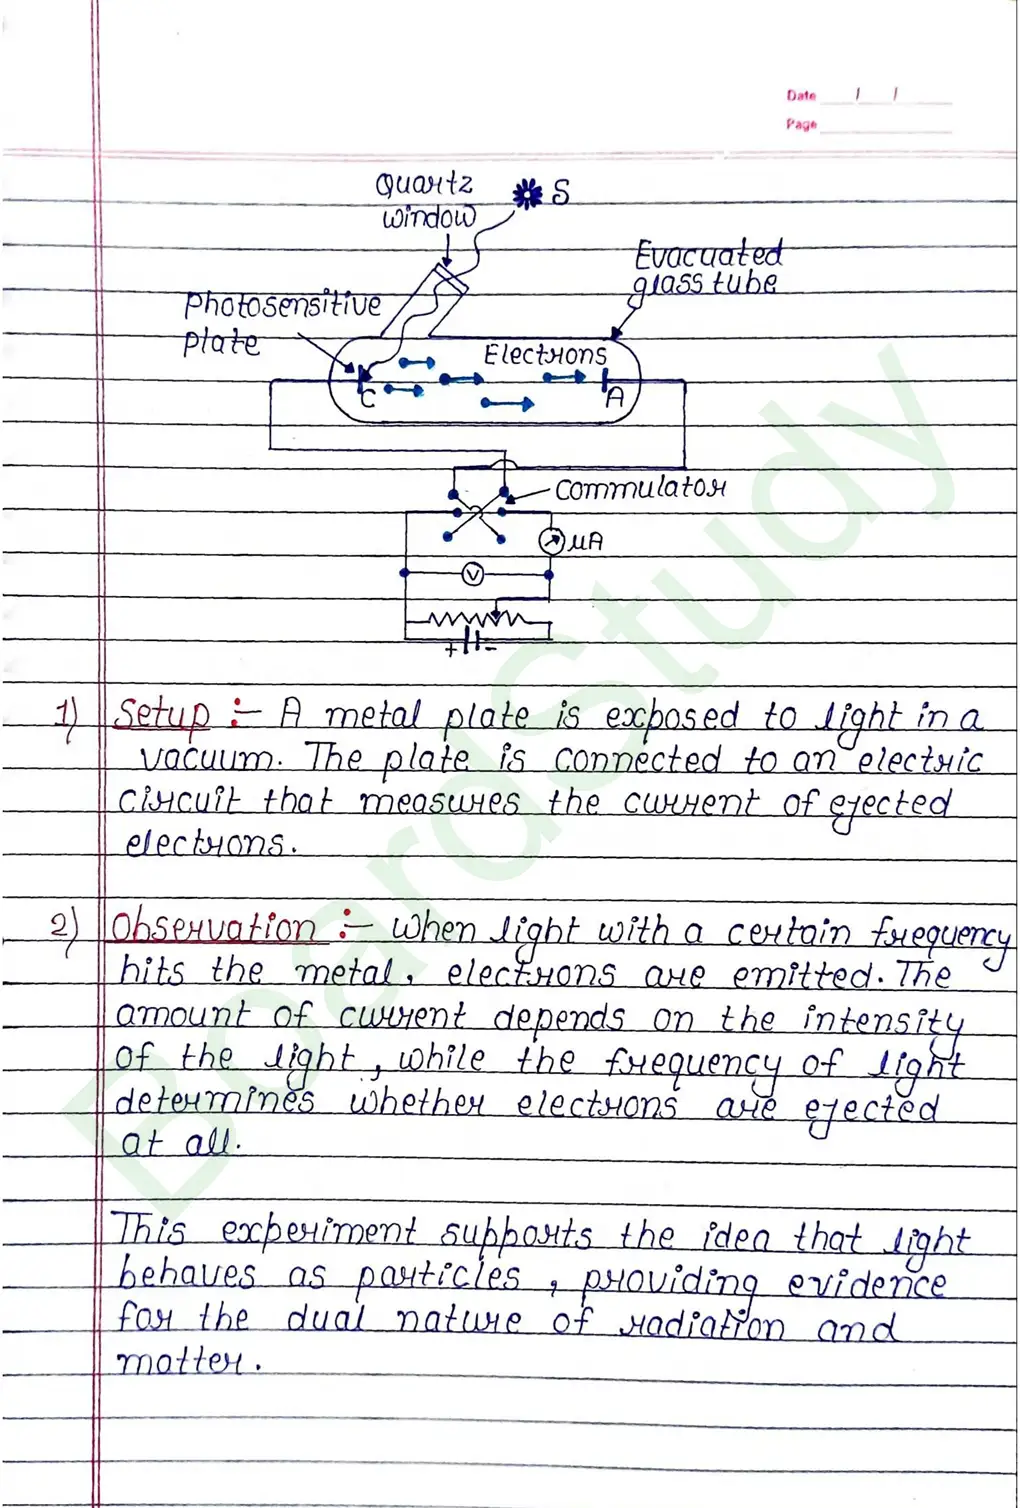 Date / /
Page
Quartz
window
S
Evacuated
glass tube
Photosensitive
plate
Electrons
C
A
Commulator
μA
V
+ -
1) Setup :- A metal plate is exposed to light in a
vacuum. The plate is connected to an electric
circuit that measures the current of ejected
electrons.
2) Observation :- When light with a certain frequency
hits the metal, electrons are emitted. The
amount of current depends on the intensity
of the light, while the frequency of light
determines whether electrons are ejected
at all.
This experiment supports the idea that light
behaves as particles, providing evidence
for the dual nature of radiation and
matter.
BoardStudy